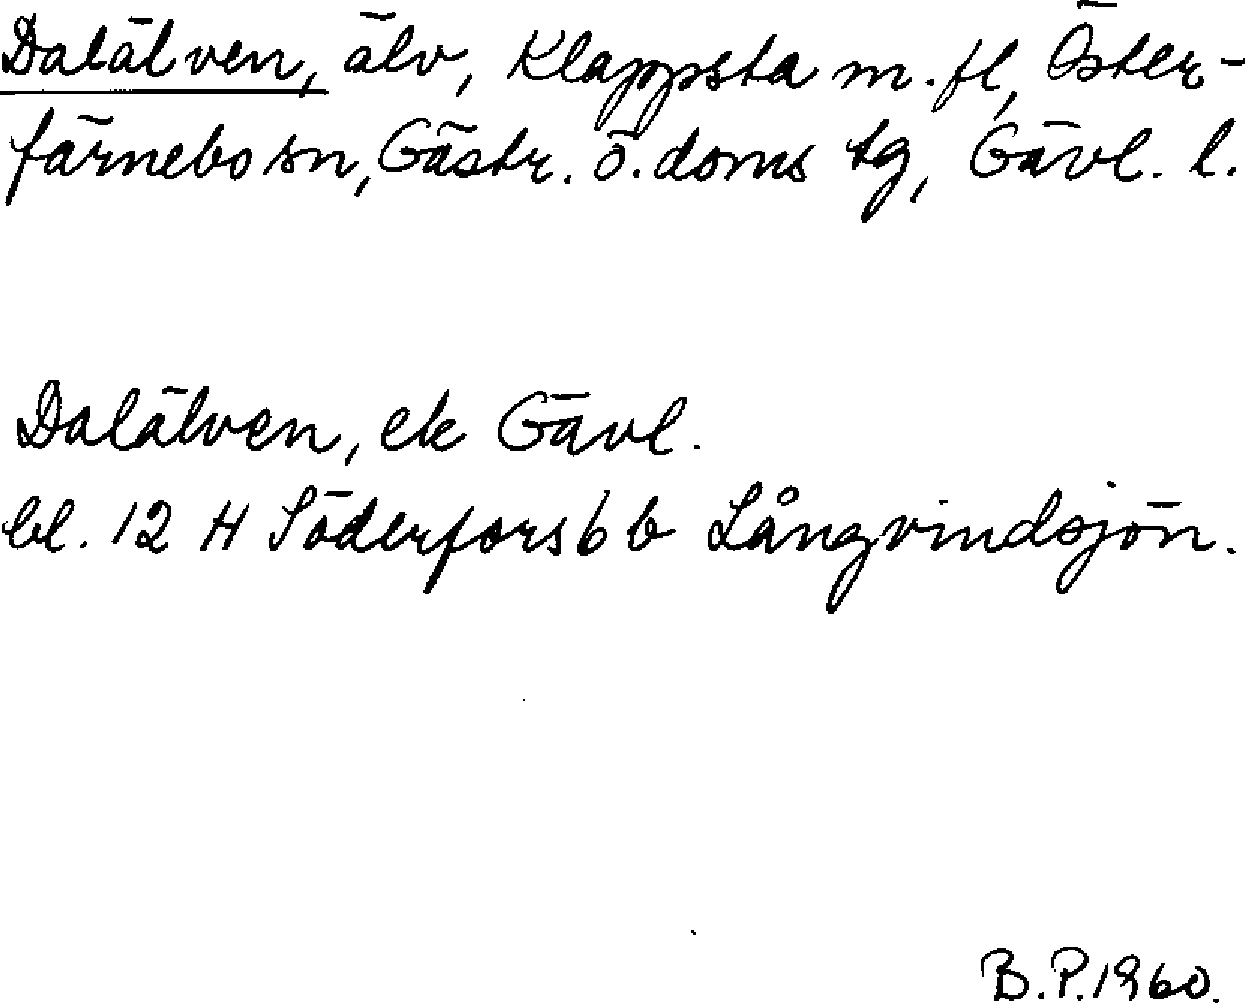 Dalälven, älv, Klappsta m.fl, Öster-
färnebo sn, Gästr. ö. doms tg, Gävl. l.
Dalälven, ek Gävl.
bl. 12 H Söderfors 6 b Långvindsjön.
B.P.1960.